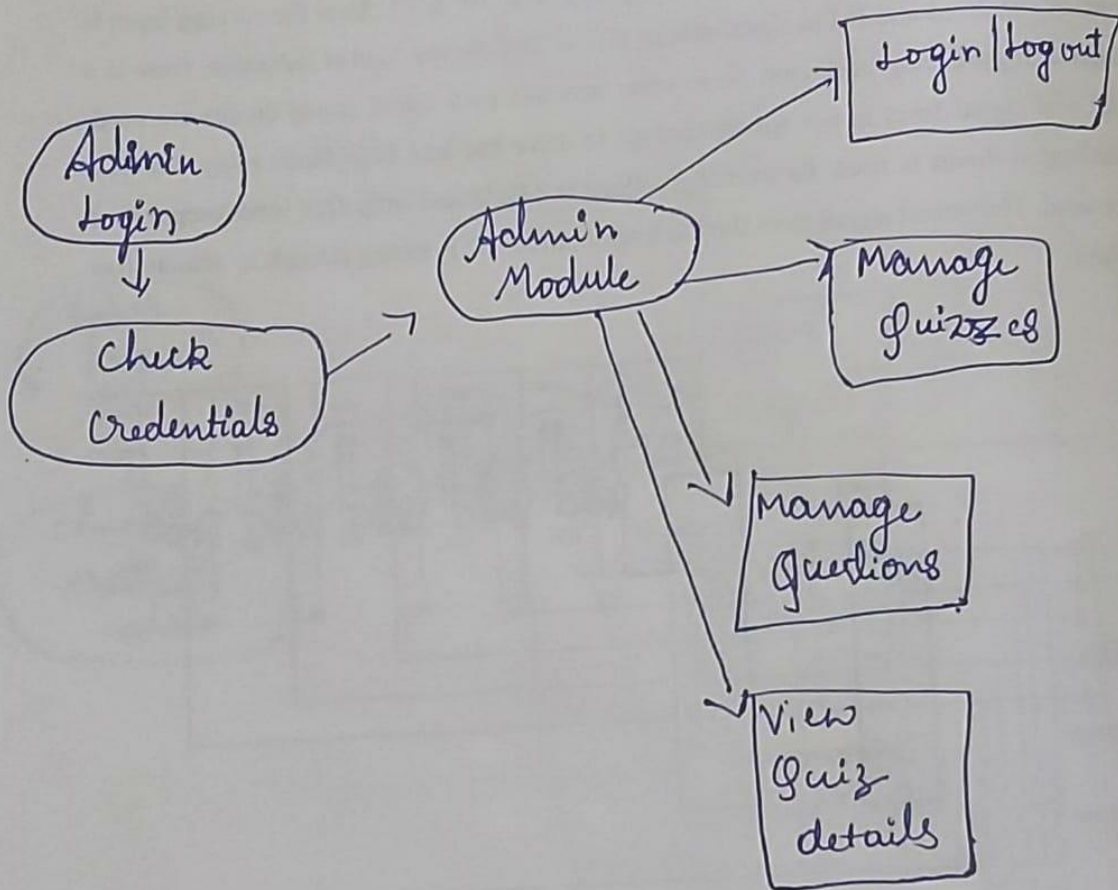 Admin
Login
Check
Credentials
Admin
Module
Login/Logout
Manage
Quizzes
Manage
Questions
View
Quiz
details